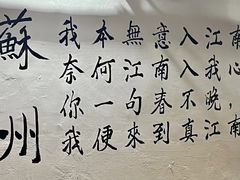 蘇州
我本無意入江南
奈何江南入我心，
你一句春不晚，
我便來到真江南